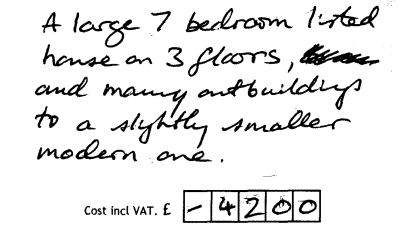 A large 7 bedroom listed
house on 3 floors,
and many outbuildings
to a slightly smaller
modern one.
Cost incl VAT. £ - 4200